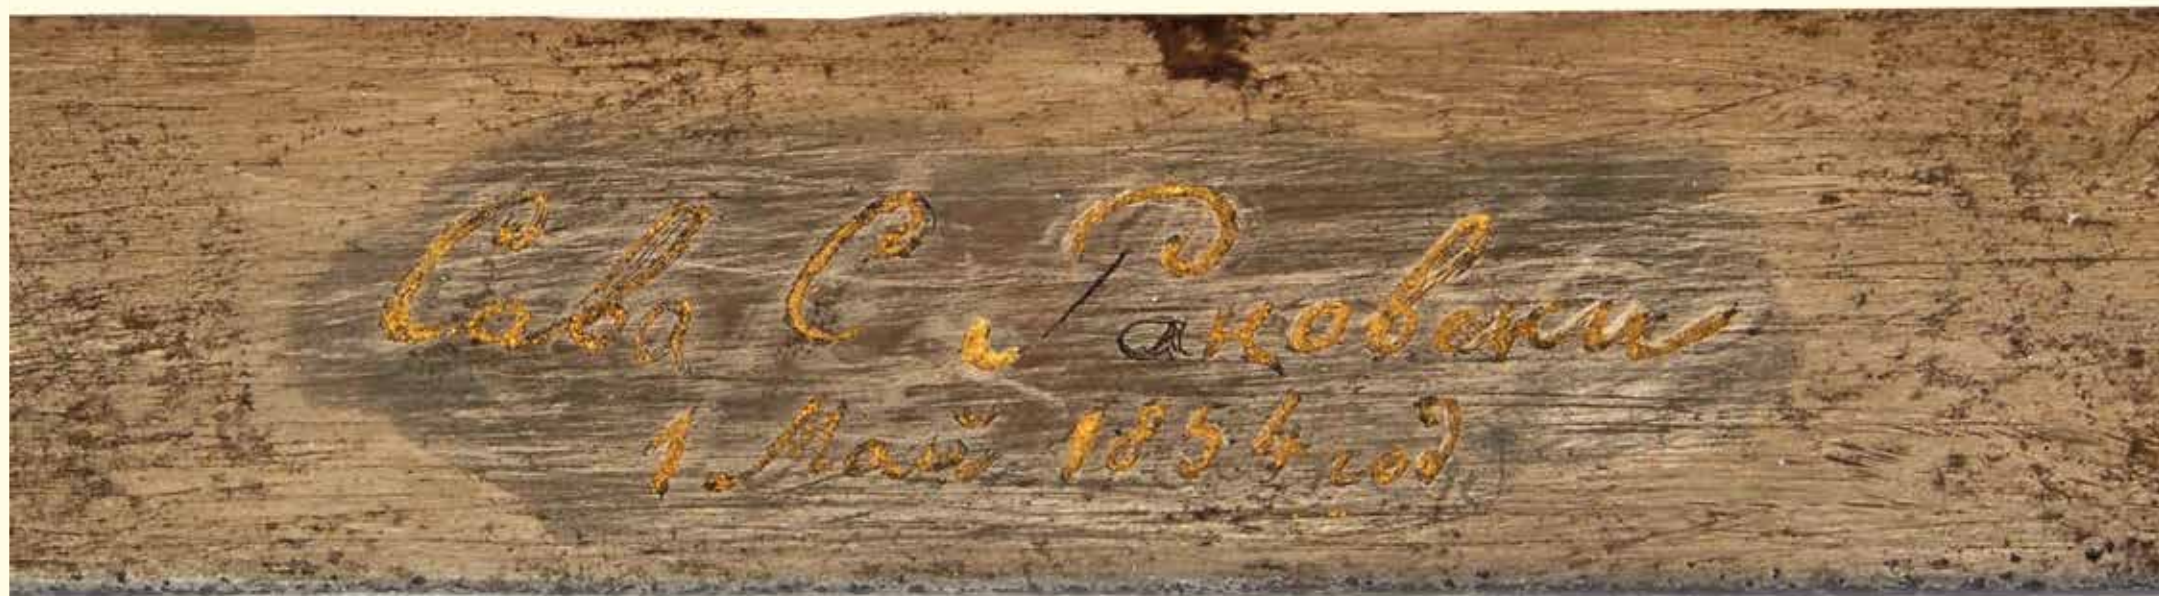 Сава С Раковски
1. Май 1854 год